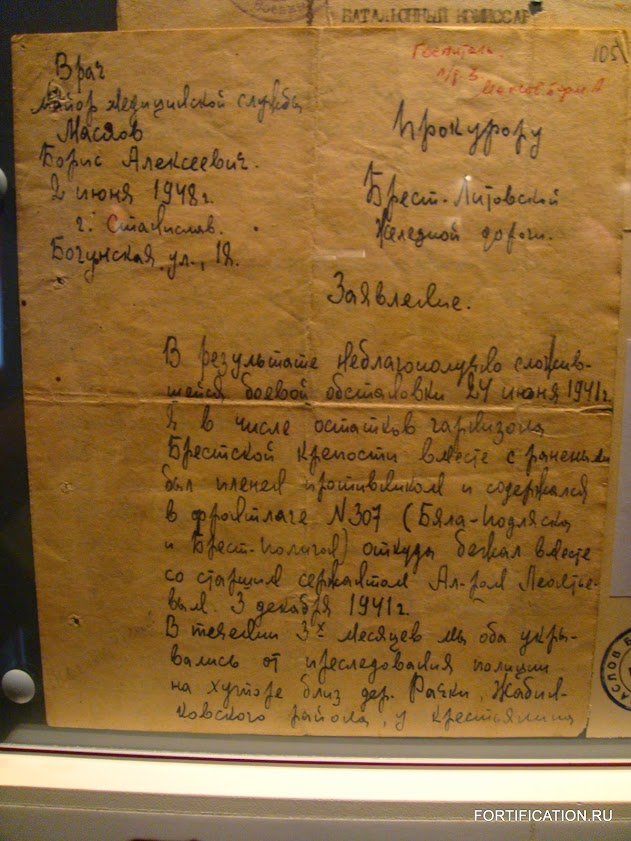 БАТАЛЬОННЫЙ КОМИССАР
105
Госпиталь
Врач
Майор медицинской службы
Маслов
Борис Алексеевич.
2 июня 1948 г.
г. Станислав.
Богунская ул., 18.
Прокурору
Брест-Литовской
Железной дороги.
Заявление.
В результате неблагополучно сложив-
шейся боевой обстановки 24 июня 1941 г.
я в числе остатков гарнизона
Брестской крепости вместе с ранеными
был пленен противником и содержался
в фронтлаге N 307 (Бяла-Подляска
и Брест-полигон) откуда бежал вместе
со старшим сержантом Ал-ром Леонтье-
вым 3 декабря 1941 г.
В течении 3х месяцев мы оба укры-
вались от преследования полиции
на хуторе близ дер. Рачки, Жабин-
ковского района, у крестьянина
FORTIFICATION.RU